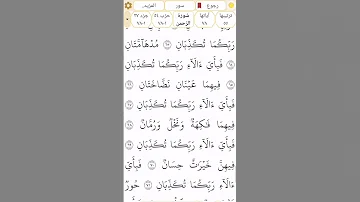 رجوع سور المزيد..
ترتيبها آياتها سُورَة حزب ٥٤ جزء ٢٧
٥٥ ٧٨ الرَّحمن ١-٧٨ ١-٧٨
رَبِّكُمَا تُكَذِّبَانِ ٦٣ مُدْهَآمَّتَانِ
٦٤ فَبِأَيِّ ءَالَآءِ رَبِّكُمَا تُكَذِّبَانِ ٦٥
فِيهِمَا عَيْنَانِ نَضَّاخَتَانِ ٦٦
فَبِأَيِّ ءَالَآءِ رَبِّكُمَا تُكَذِّبَانِ ٦٧
فِيهِمَا فَٰكِهَةٌ وَنَخْلٌ وَرُمَّانٌ ٦٨
فَبِأَيِّ ءَالَآءِ رَبِّكُمَا تُكَذِّبَانِ ٦٩
فِيهِنَّ خَيْرَٰتٌ حِسَانٌ ٧٠ فَبِأَيِّ
ءَالَآءِ رَبِّكُمَا تُكَذِّبَانِ ٧١ حُورٌ